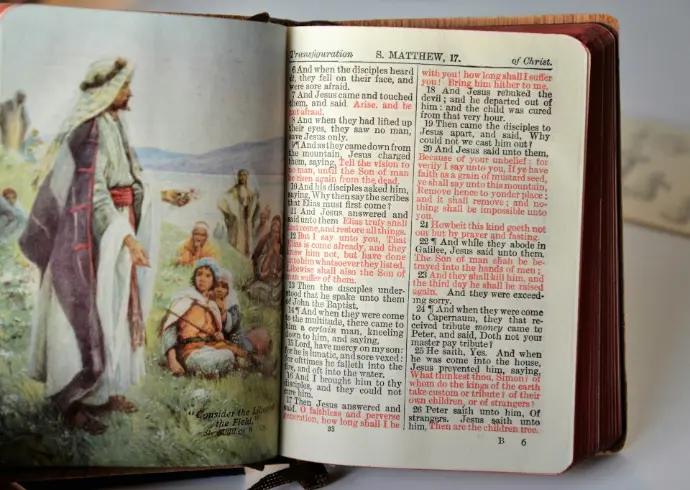 "Consider the Lilies of
the Field,"
Transfiguration
S. MATTHEW, 17.
of Christ.
6 And when the disciples heard
it, they fell on their face, and
were sore afraid.
7 And Jesus came and touched
them, and said, Arise, and be
not afraid.
8 And when they had lifted up
their eyes, they saw no man,
save Jesus only.
9 ¶ And as they came down from
the mountain, Jesus charged
them, saying, Tell the vision to
no man, until the Son of man
be risen again from the dead.
10 And his disciples asked him,
saying, Why then say the scribes
that Elias must first come?
11 And Jesus answered and
said unto them Elias truly shall
first come, and restore all things.
12 But I say unto you, That
Elias is come already, and they
knew him not, but have done
unto him whatsoever they listed.
Likewise shall also the Son of
man suffer of them.
13 Then the disciples under-
stood that he spake unto them
of John the Baptist.
14 ¶ And when they were come
to the multitude, there came to
him a certain man, kneeling
down to him, and saying,
15 Lord, have mercy on my son:
for he is lunatic, and sore vexed:
for ofttimes he falleth into the
fire, and oft into the water.
16 And I brought him to thy
disciples, and they could not
cure him.
17 Then Jesus answered and
said, O faithless and perverse
generation, how long shall I be
33
with you? how long shall I suffer
you? Bring him hither to me.
18 And Jesus rebuked the
devil; and he departed out of
him: and the child was cured
from that very hour.
19 Then came the disciples to
Jesus apart, and said, Why
could not we cast him out?
20 And Jesus said unto them,
Because of your unbelief: for
verily I say unto you, If ye have
faith as a grain of mustard seed,
ye shall say unto this mountain,
Remove hence to yonder place;
and it shall remove; and no-
thing shall be impossible unto
you.
21 Howbeit this kind goeth not
out but by prayer and fasting.
22 ¶ And while they abode in
Galilee, Jesus said unto them,
The Son of man shall be be-
trayed into the hands of men:
23 And they shall kill him, and
the third day he shall be raised
again. And they were exceed-
ing sorry.
24 ¶ And when they were come
to Capernaum, they that re-
ceived tribute money came to
Peter, and said, Doth not your
master pay tribute?
25 He saith, Yes. And when
he was come into the house,
Jesus prevented him, saying,
What thinkest thou, Simon? of
whom do the kings of the earth
take custom or tribute? of their
own children, or of strangers?
26 Peter saith unto him, Of
strangers. Jesus saith unto
him, Then are the children free.
B 6